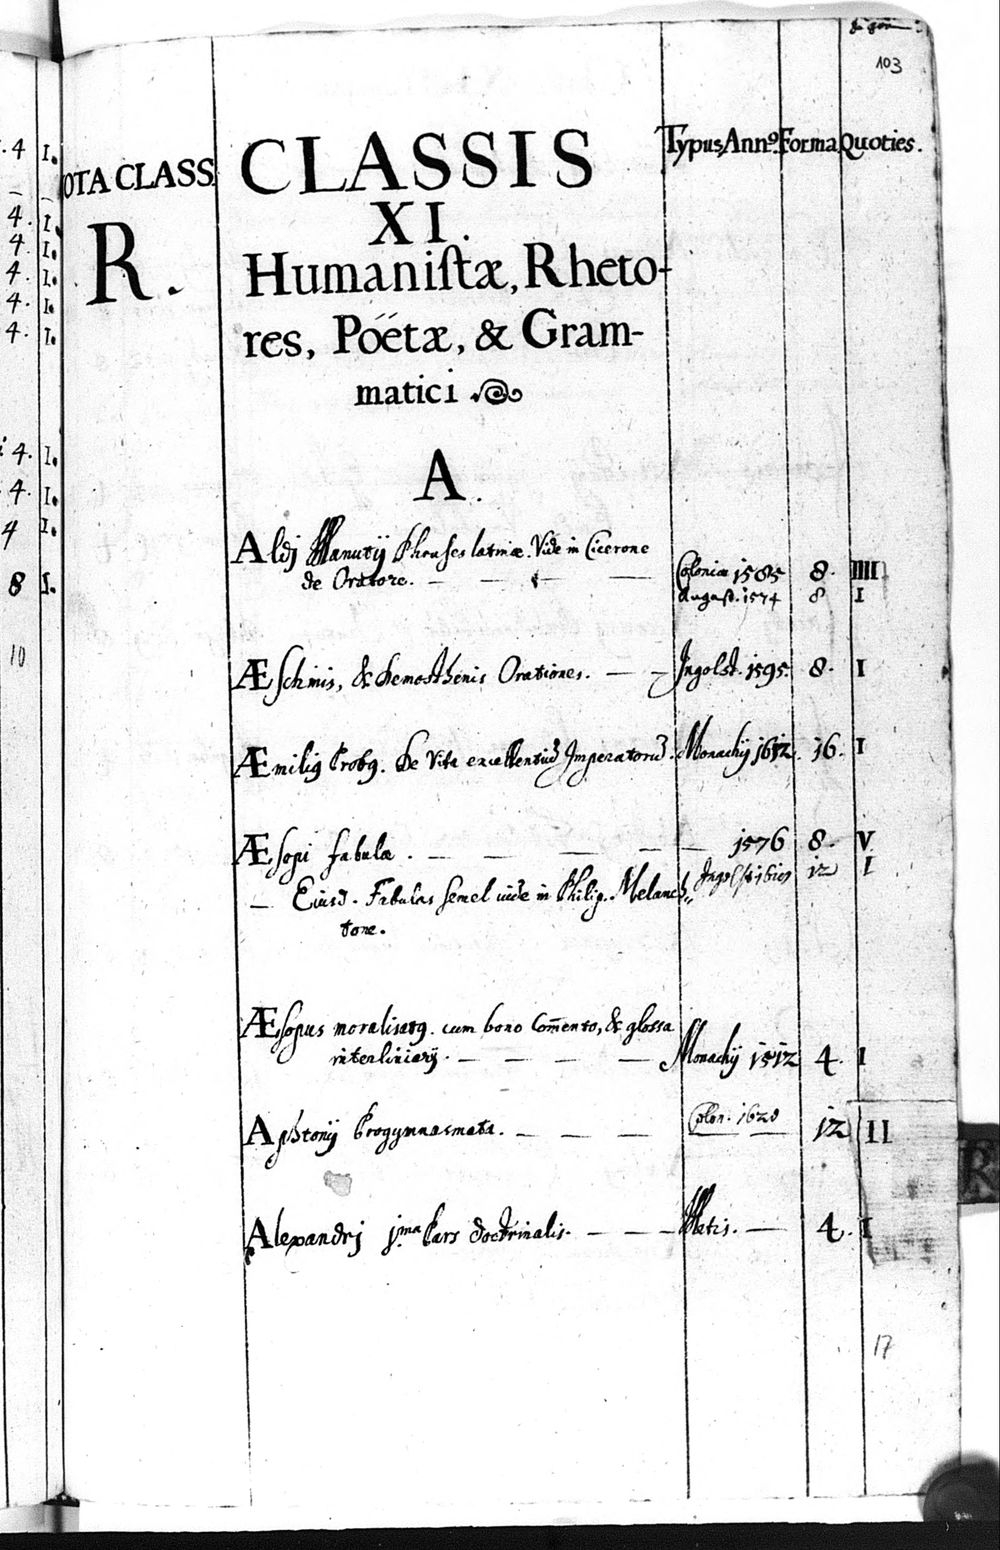 103
Typus, Anno. Forma Quoties.
.4 I.
OTA CLASS. CLASSIS
4. I.
XI.
4. I.
R. Humaniſtæ, Rheto-
4. I.
4. I.
4. I.
res, Poëtæ, & Gram-
matici
4. I.
A.
4. I.
4 I.
Aldj Manutij Phrases latinæ. Vide in Cicerone
de Oratore. Coloniæ 1585 8. IIII
8 I.
August. 1574 8 I
10
Æschinis, & Demosthenis Orationes. Ingolst. 1595. 8. I
Æmiliꝰ Probꝰ. De Vita excellentiū Imperatorū. Monachij 1612. 16. I
Æsopi fabulæ. 1576 8. V
Ingolst 12 I
Eiusd. Fabulas semel vide in Philip. Melanch„
tone.
Æsopus moralisatꝰ. cum bono Com̄ento, & glossa
interliniarj. Monachij 1512 4. I
Aphtonij Progymnasmata. Colon. 1628 12 II
Alexandrj jma. Pars doctrinalis. Metis. 4. I
17
R